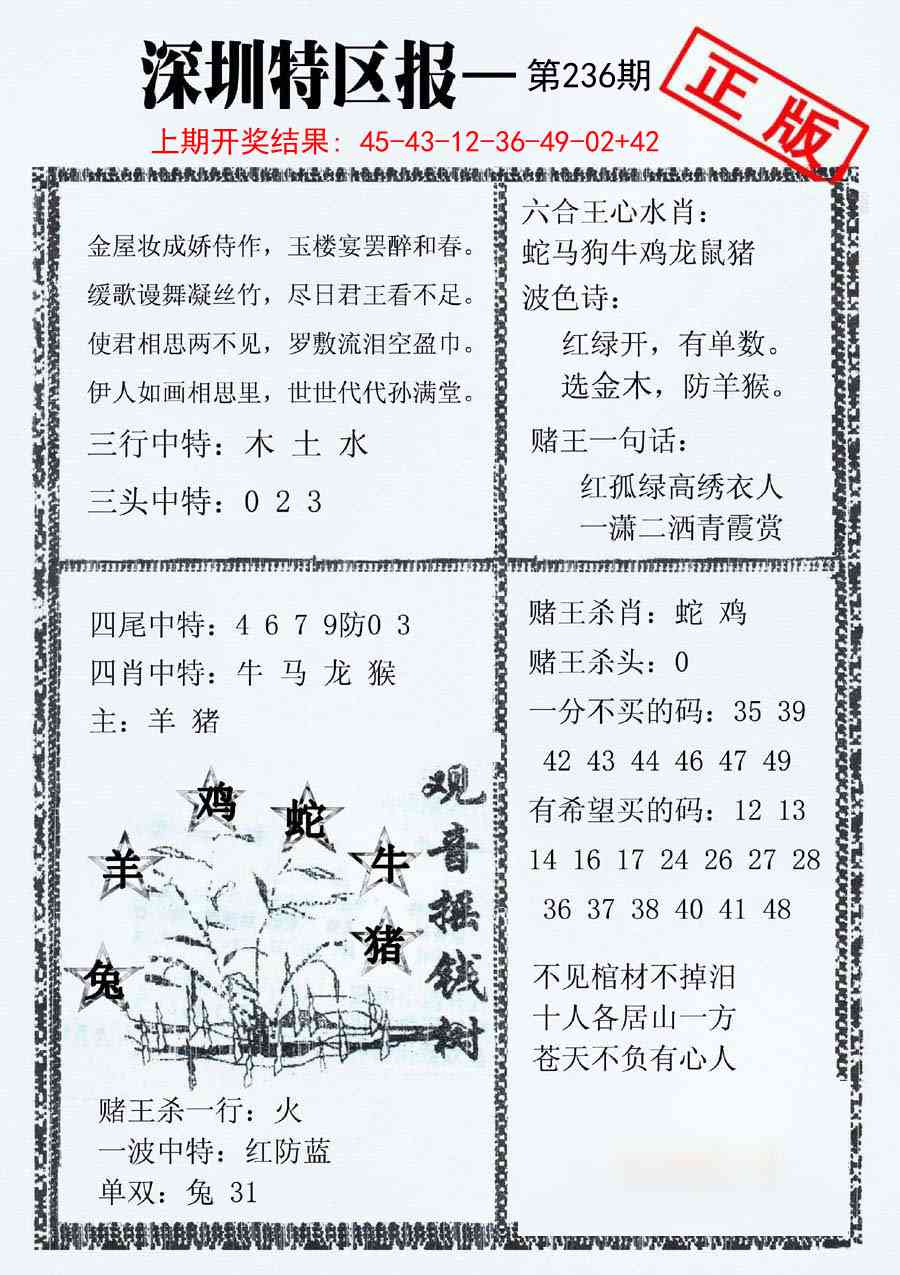 深圳特区报—第236期
正版
上期开奖结果: 45-43-12-36-49-02+42
金屋妆成娇侍作，玉楼宴罢醉和春。
缓歌谩舞凝丝竹，尽日君王看不足。
使君相思两不见，罗敷流泪空盈巾。
伊人如画相思里，世世代代孙满堂。
三行中特：木 土 水
三头中特：0 2 3
六合王心水肖：
蛇马狗牛鸡龙鼠猪
波色诗：
红绿开，有单数。
选金木，防羊猴。
赌王一句话：
红孤绿高绣衣人
一潇二洒青霞赏
四尾中特：4 6 7 9防0 3
四肖中特：牛 马 龙 猴
主：羊 猪
鸡
蛇
羊
牛
猪
兔
观音摇钱树
赌王杀一行：火
一波中特：红防蓝
单双：兔 31
赌王杀肖：蛇 鸡
赌王杀头：0
一分不买的码：35 39
42 43 44 46 47 49
有希望买的码：12 13
14 16 17 24 26 27 28
36 37 38 40 41 48
不见棺材不掉泪
十人各居山一方
苍天不负有心人